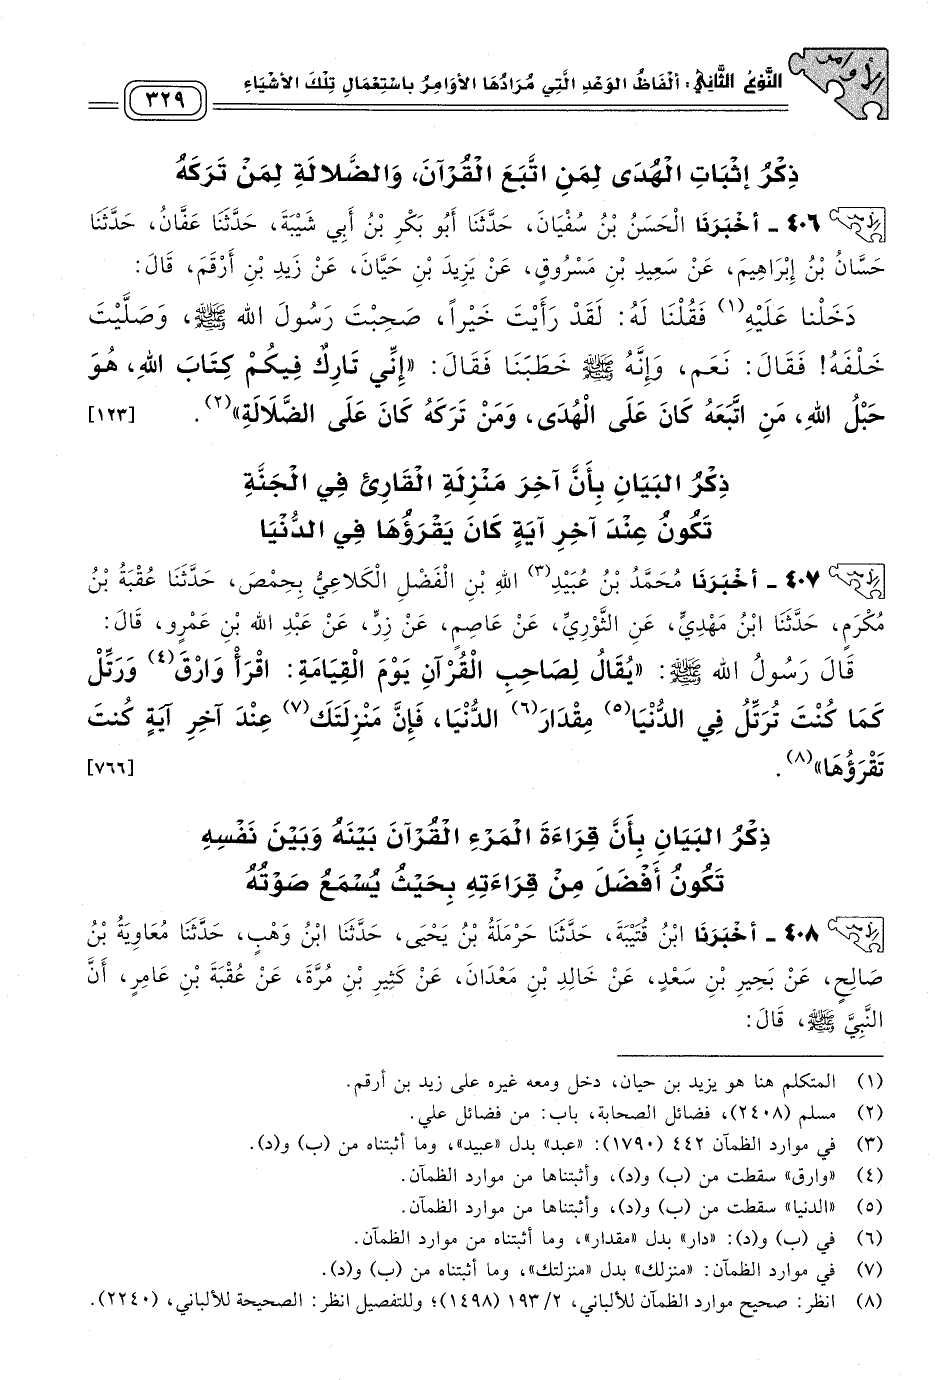 الأوامر
النَّوْعُ الثَّانِي: أَلْفَاظُ الوَعْدِ الَّتِي مُرَادُهَا الأَوَامِرُ بِاسْتِعْمَالِ تِلْكَ الأَشْيَاءِ
٣٢٩
ذِكْرُ إِثْبَاتِ الْهُدَى لِمَنِ اتَّبَعَ الْقُرْآنَ، وَالضَّلالَةِ لِمَنْ تَرَكَهُ
٤٠٦ - أَخْبَرَنَا الْحَسَنُ بْنُ سُفْيَانَ، حَدَّثَنَا أَبُو بَكْرِ بْنُ أَبِي شَيْبَةَ، حَدَّثَنَا عَفَّانُ، حَدَّثَنَا
حَسَّانُ بْنُ إِبْرَاهِيمَ، عَنْ سَعِيدِ بْنِ مَسْرُوقٍ، عَنْ يَزِيدَ بْنِ حَيَّانَ، عَنْ زَيدِ بْنِ أَرْقَمَ، قَالَ:
دَخَلْنا عَلَيْهِ(١) فَقُلْنَا لَهُ: لَقَدْ رَأَيْتَ خَيْراً، صَحِبْتَ رَسُولَ الله ﷺ، وَصَلَّيْتَ
خَلْفَهُ! فَقَالَ: نَعَم، وَإِنَّهُ ﷺ خَطَبَنَا فَقَالَ: «إِنِّي تَارِكٌ فِيكُمْ كِتَابَ اللهِ، هُوَ
حَبْلُ اللهِ، مَنِ اتَّبَعَهُ كَانَ عَلَى الْهُدَى، وَمَنْ تَرَكَهُ كَانَ عَلَى الضَّلَالَةِ»(٢). [١٢٣]
ذِكْرُ البَيَانِ بِأَنَّ آخِرَ مَنْزِلَةِ الْقَارِئِ فِي الْجَنَّةِ
تَكُونُ عِنْدَ آخِرِ آيَةٍ كَانَ يَقْرَؤُهَا فِي الدُّنْيَا
٤٠٧ - أَخْبَرَنَا مُحَمَّدُ بْنُ عُبَيْدِ(٣) اللهِ بْنِ الْفَضْلِ الْكَلاعِيُّ بِحِمْصَ، حَدَّثَنَا عُقْبَةُ بْنُ
مُكْرَمٍ، حَدَّثَنَا ابْنُ مَهْدِيٍّ، عَنِ الثَّوْرِيِّ، عَنْ عَاصِمٍ، عَنْ زِرٍّ، عَنْ عَبْدِ الله بْنِ عَمْرٍو، قَالَ:
قَالَ رَسُولُ الله ﷺ: «يُقَالُ لِصَاحِبِ الْقُرْآنِ يَوْمَ الْقِيَامَةِ: اقْرَأْ وَارْقَ(٤) وَرَتِّلْ
كَمَا كُنْتَ تُرَتِّلُ فِي الدُّنْيَا(٥) مِقْدَارَ(٦) الدُّنْيَا، فَإِنَّ مَنْزِلَتَكَ(٧) عِنْدَ آخِرِ آيَةٍ كُنتَ
تَقْرَؤُهَا»(٨). [٧٦٦]
ذِكْرُ البَيَانِ بِأَنَّ قِرَاءَةَ الْمَرْءِ الْقُرْآنَ بَيْنَهُ وَبَيْنَ نَفْسِهِ
تَكُونُ أَفْضَلَ مِنْ قِرَاءَتِهِ بِحَيْثُ يُسْمَعُ صَوْتُهُ
٤٠٨ - أَخْبَرَنَا ابْنُ قُتَيْبَةَ، حَدَّثَنَا حَرْمَلَةُ بْنُ يَحْيَى، حَدَّثَنَا ابْنُ وَهْبٍ، حَدَّثَنَا مُعَاوِيَةُ بْنُ
صَالِحٍ، عَنْ بَحِيرِ بْنِ سَعْدٍ، عَنْ خَالِدِ بْنِ مَعْدَانَ، عَنْ كَثِيرِ بْنِ مُرَّةَ، عَنْ عُقْبَةَ بْنِ عَامِرٍ، أَنَّ
النَّبِيَّ ﷺ، قَالَ:
(١) المتكلم هنا هو يزيد بن حيان، دخل ومعه غيره على زيد بن أرقم.
(٢) مسلم (٢٤٠٨)، فضائل الصحابة، باب: من فضائل علي.
(٣) في موارد الظمآن ٤٤٢ (١٧٩٠): «عبد» بدل «عبيد»، وما أثبتناه من (ب) و(د).
(٤) «وارق» سقطت من (ب) و(د)، وأثبتناها من موارد الظمآن.
(٥) «الدنيا» سقطت من (ب) و(د)، وأثبتناها من موارد الظمآن.
(٦) في (ب) و(د): «دار» بدل «مقدار»، وما أثبتناه من موارد الظمآن.
(٧) في موارد الظمآن: «منزلك» بدل «منزلتك»، وما أثبتناه من (ب) و(د).
(٨) انظر: صحيح موارد الظمآن للألباني، ١٩٣/٢ (١٤٩٨)؛ وللتفصيل انظر: الصحيحة للألباني، (٢٢٤٠).